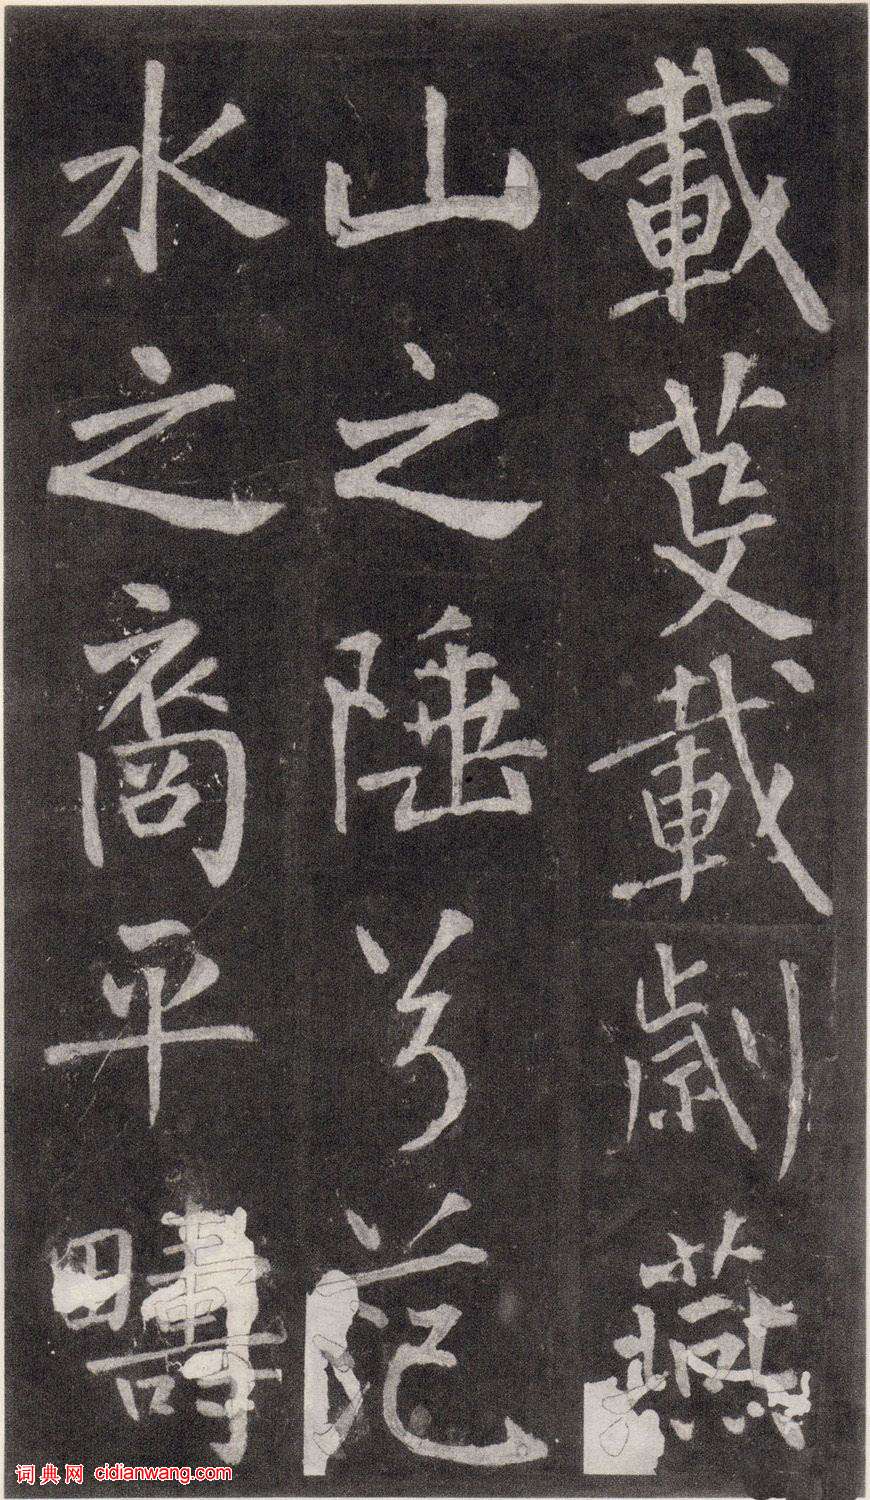 載芟載劌燕
山之陲兮范
水之裔平疇
词典网 cidianwang.com